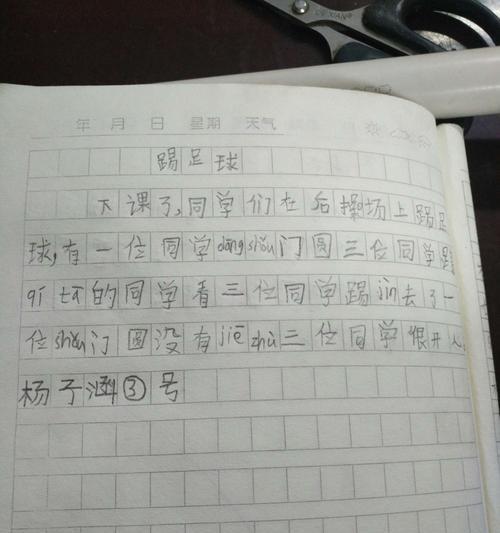 年 月 日 星期 天气
踢足球
下课了,同学们在后操场上踢足
球,有一位同学dāng shǒu门圆三位同学踢
qí tā的同学看三位同学踢jìn去了一
位shǒu门圆没有jiē zhù三位同学很开人。
杨子涵③号